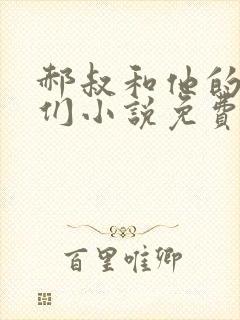 郝叔和他的
们小說免費
百里唯卿